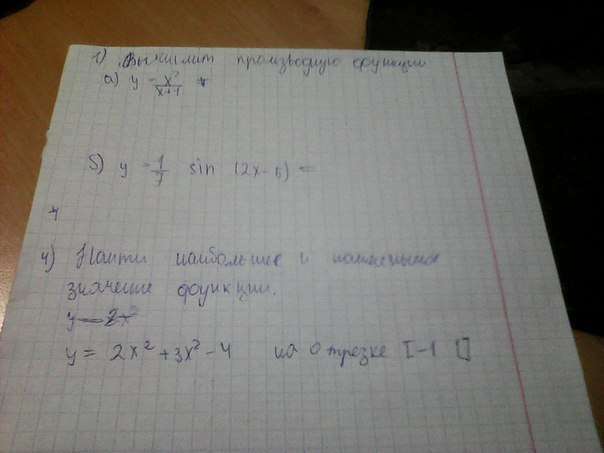 1) Вычислит производную функции
а) y = x²/x+1
б) y = 1/7 sin (2x-5) =
4) Найти наибольшее и
значение функции.
y = 2x²
y = 2x² + 3x² - 4 на отрезке [-1 1]